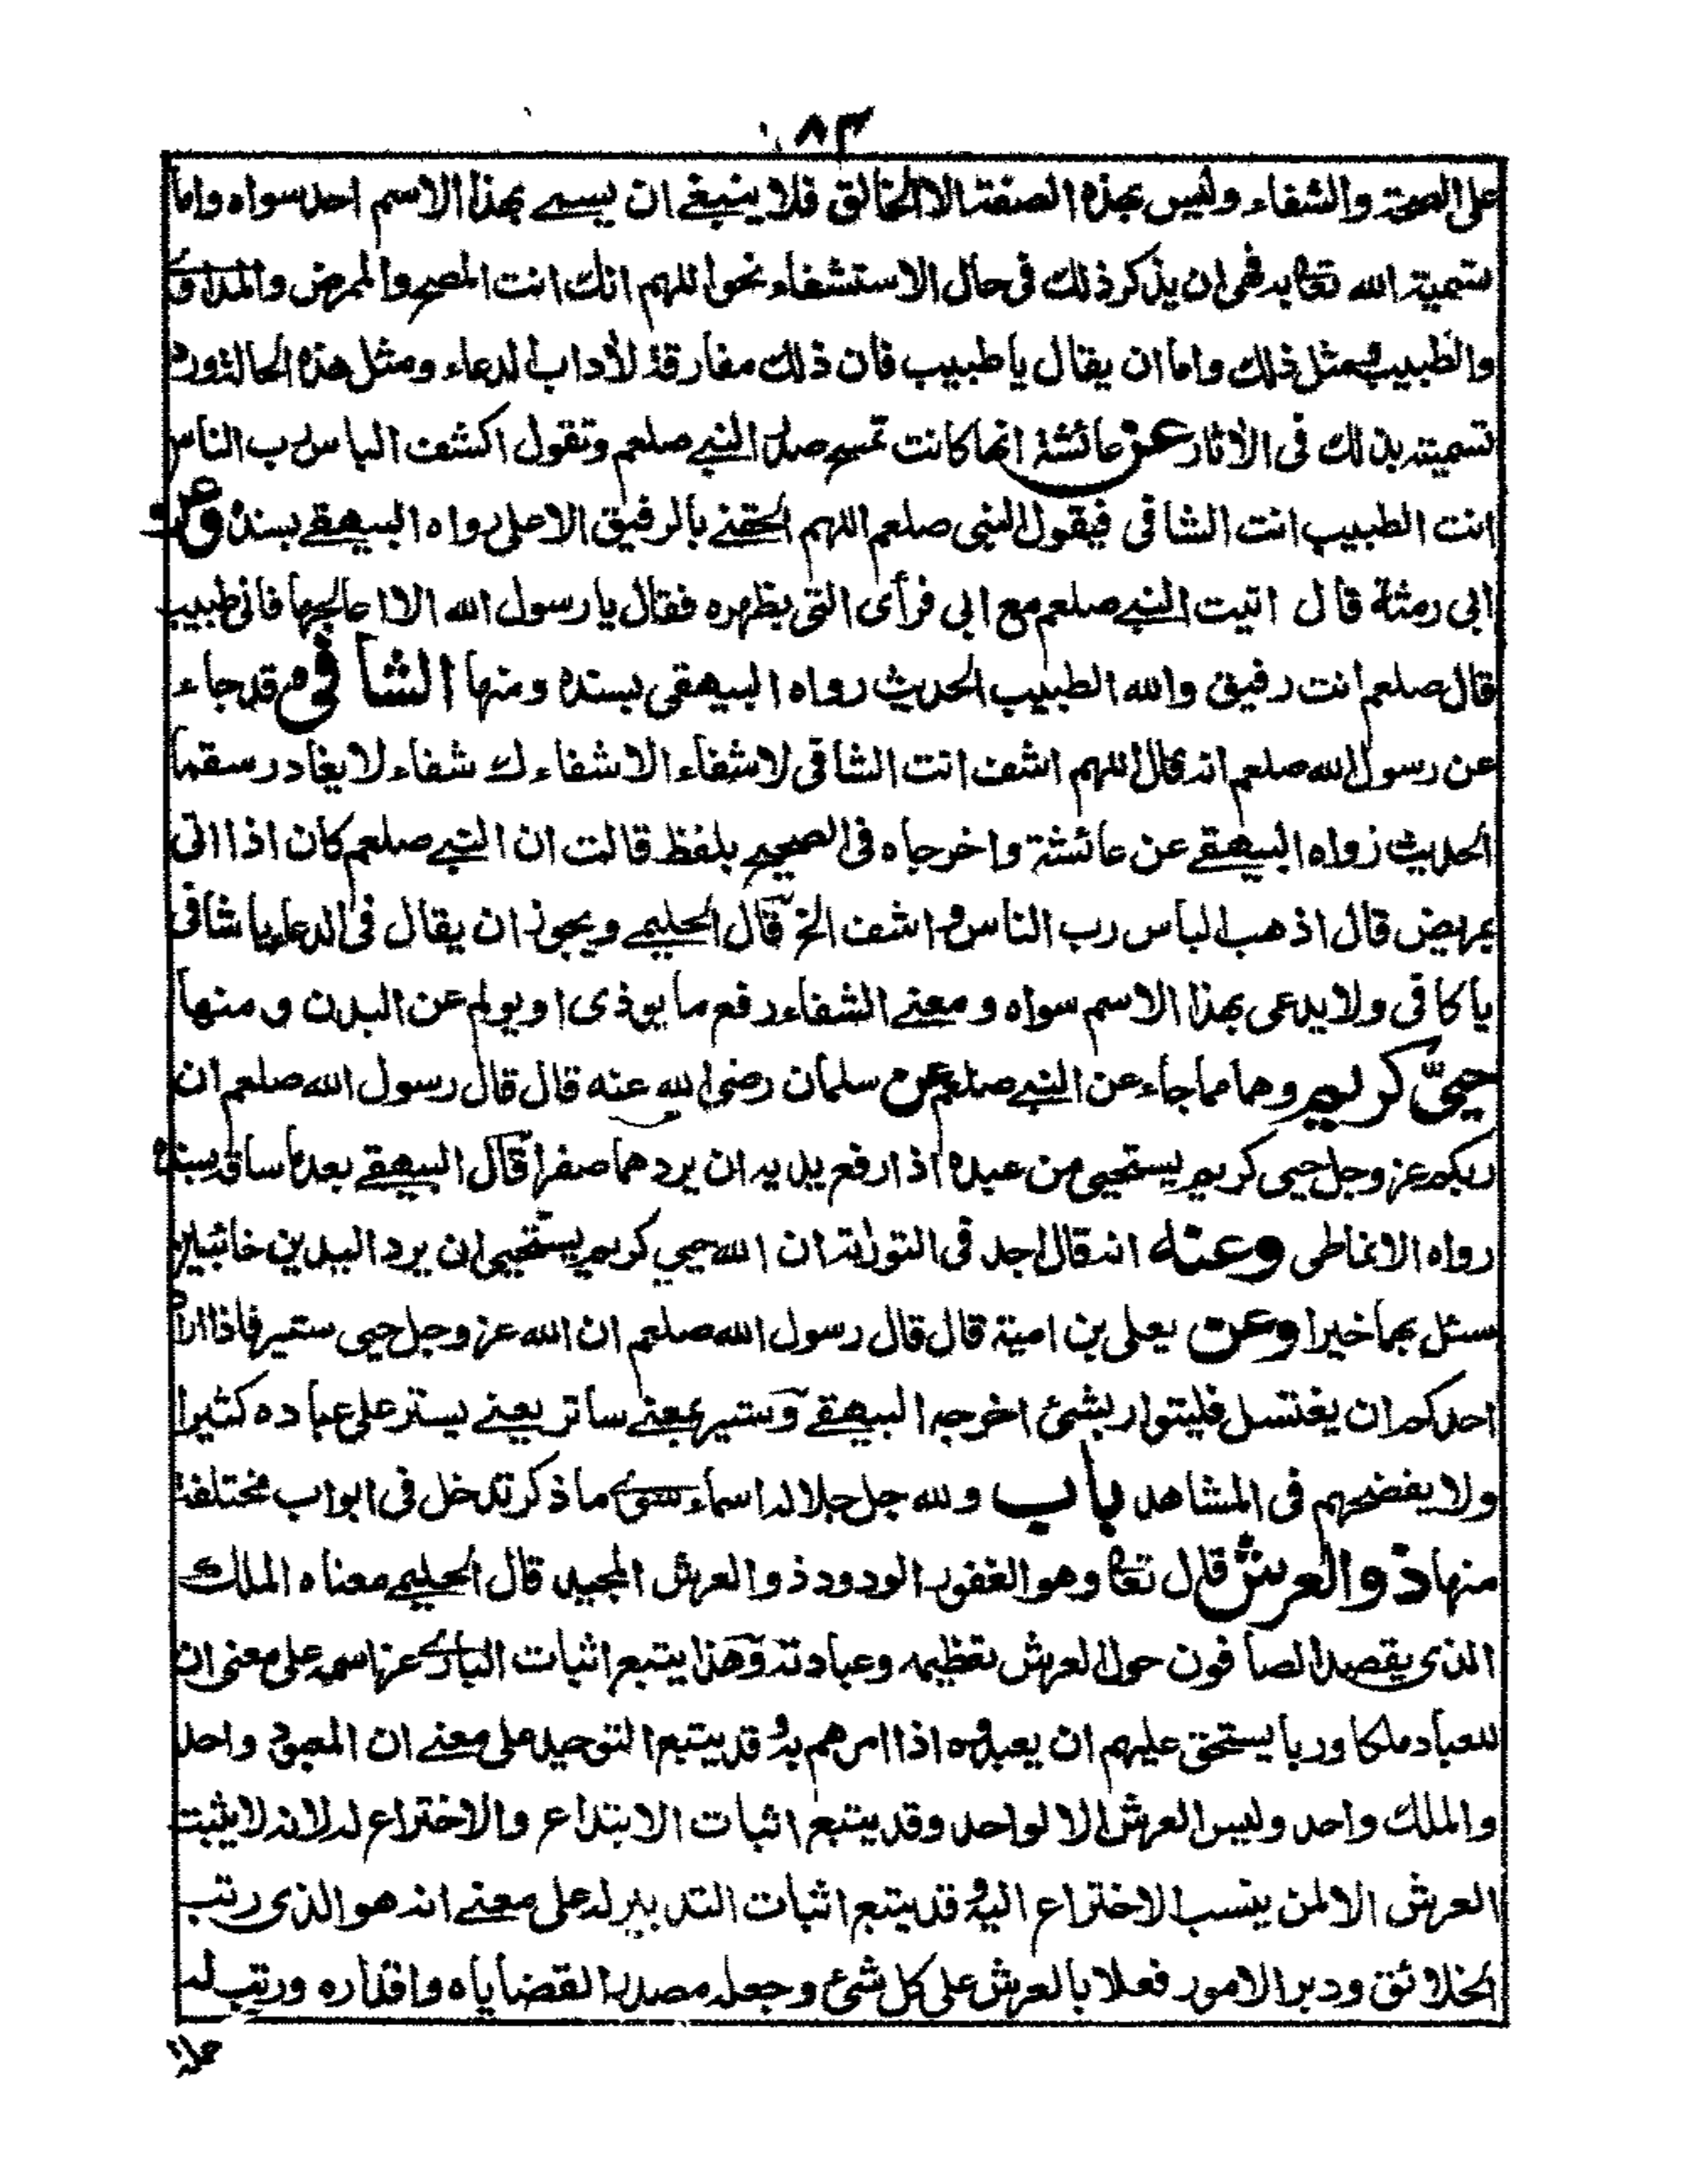 ٨٣
على الصحة والشفاء وليس بهذه الصفة الا الخالق فلا ينبغي ان يسمى بهذا الاسم احد سواه واما
تسمية الله تعا به فهى ان يذكر ذلك فى حال الاستشفاء نحو اللهم انك انت المصح والممرض والمداوى
والطبيب ومثل ذلك واما ان يقال يا طبيب فان ذلك مفارقة لأداب الدعاء ومثل هذه الحالة ورد
تسميته بذلك فى الأثار عن عائشة انها كانت تمسح صدر النبي صلعم وتقول اكشف الباس رب الناس
انت الطبيب انت الشافى فيقول النبى صلعم اللهم الحقنى بالرفيق الاعلى رواه البيهقى بسنده وعن
ابى رمثة قال اتيت النبي صلعم مع ابى فرأى التى بظهره فقال يا رسول الله الا اعالجها فانى طبيب
قال صلعم انت رفيق والله الطبيب الحديث رواه البيهقى بسنده ومنها الشافى وقد جاء
عن رسول الله صلعم انه قال اللهم اشف انت الشافى لا شفاء الا شفاءك شفاء لا يغادر سقما
الحديث رواه البيهقى عن عائشة واخرجاه فى الصحيح بلفظ قالت ان النبي صلعم كان اذا اتى
بمريض قال اذهب الباس رب الناس واشف الخ قال الحليمى ويجوز ان يقال فى الدعاء يا شافى
يا كافى ولا يدعى بهذا الاسم سواه ومعنى الشفاء رفع ما يوذى او يولم عن البدن ومنها
حيىّ كريم وهما مما جاء عن النبي صلعم عن سلمان رضى الله عنه قال قال رسول الله صلعم ان
ربكم عز وجل حيى كريم يستحيى من عبده اذا رفع يديه ان يردهما صفرا قال البيهقى بعد ما ساق بسنده
رواه الانماطى وعنه انه قال اجد فى التوراة ان الله حيى كريم يستحيى ان يرد اليدين خائبتين
سئل بهما خيرا وعن يعلى بن امية قال قال رسول الله صلعم ان الله عز وجل حيى ستير فاذا اراد
احدكم ان يغتسل فليتوار بشئ اخرجه البيهقى وستير بمعنى ساتر يعنى يستر على عباده كثيرا
ولا يفضحهم فى المشاهد باب ولله جل جلاله اسماء سوى ما ذكر تدخل فى ابواب مختلفة
منها ذو العرش قال تعا وهو الغفور الودود ذو العرش المجيد قال الحليمى معناه الملك
الذى يقصد الصافون حول العرش تعظيمه وعبادته وهذا يتبع اثبات البارى عز اسمه على معنى ان
للعباد ملكا وربا يستحق عليهم ان يعبدوه اذا امرهم به وقد يتبع التوحيد على معنى ان المعبود واحد
والملك واحد وليس العرش الا لواحد وقد يتبع اثبات الابتداع والاختراع له لانه لا يثبت
العرش الا لمن ينسب الاختراع اليه وقد يتبع اثبات التدبير له على معنى انه هو الذى رتب
الخلائق ودبر الامور فعلا بالعرش على كل شئ وجعله مصدرا لقضاياه واقداره ورتب له